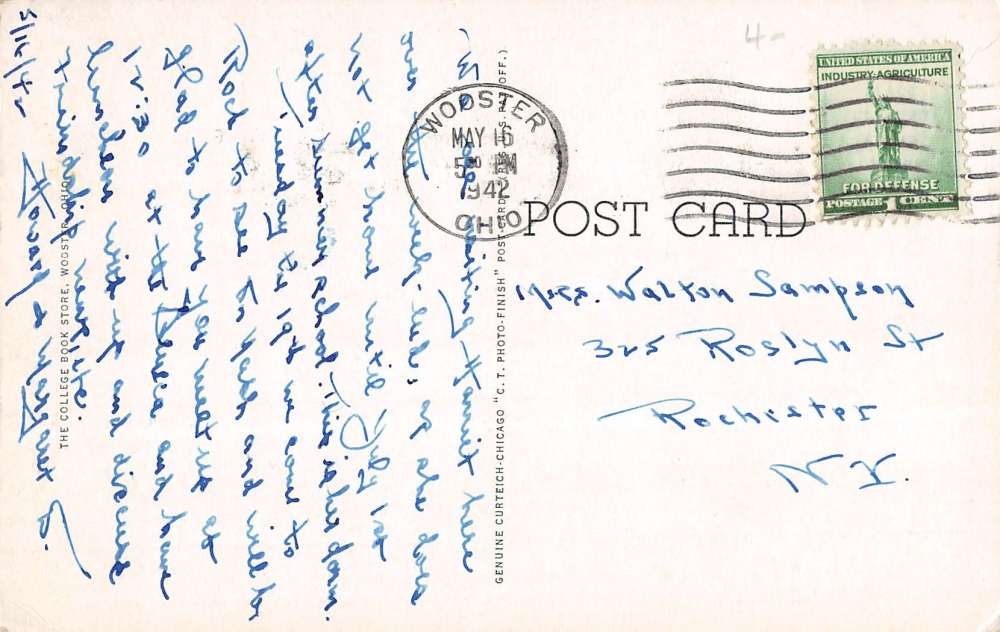 5/16/42
visiting Harriet here
over the week-end, as she does
not get home until July 1st
after summer school. This is her dorm.
Tuesday the 19th we come to
Roch to see Dr and will be
glad to have you meet us at
12:30 at the Seneca and have
luncheon with us and discuss
friendship
Howard & Margaret
THE COLLEGE BOOK STORE, WOOSTER, OHIO
GENUINE CURTEICH-CHICAGO "C. T. PHOTO-FINISH" POST-CARD (REG. U.S. PAT. OFF.)
4-
WOOSTER
MAY 16
5 PM
1942
OHIO
UNITED STATES OF AMERICA
INDUSTRY-AGRICULTURE
FOR DEFENSE
POSTAGE 1 CENT
POST CARD
Mrs. Walton Sampson
325 Roslyn St
Rochester
N.Y.